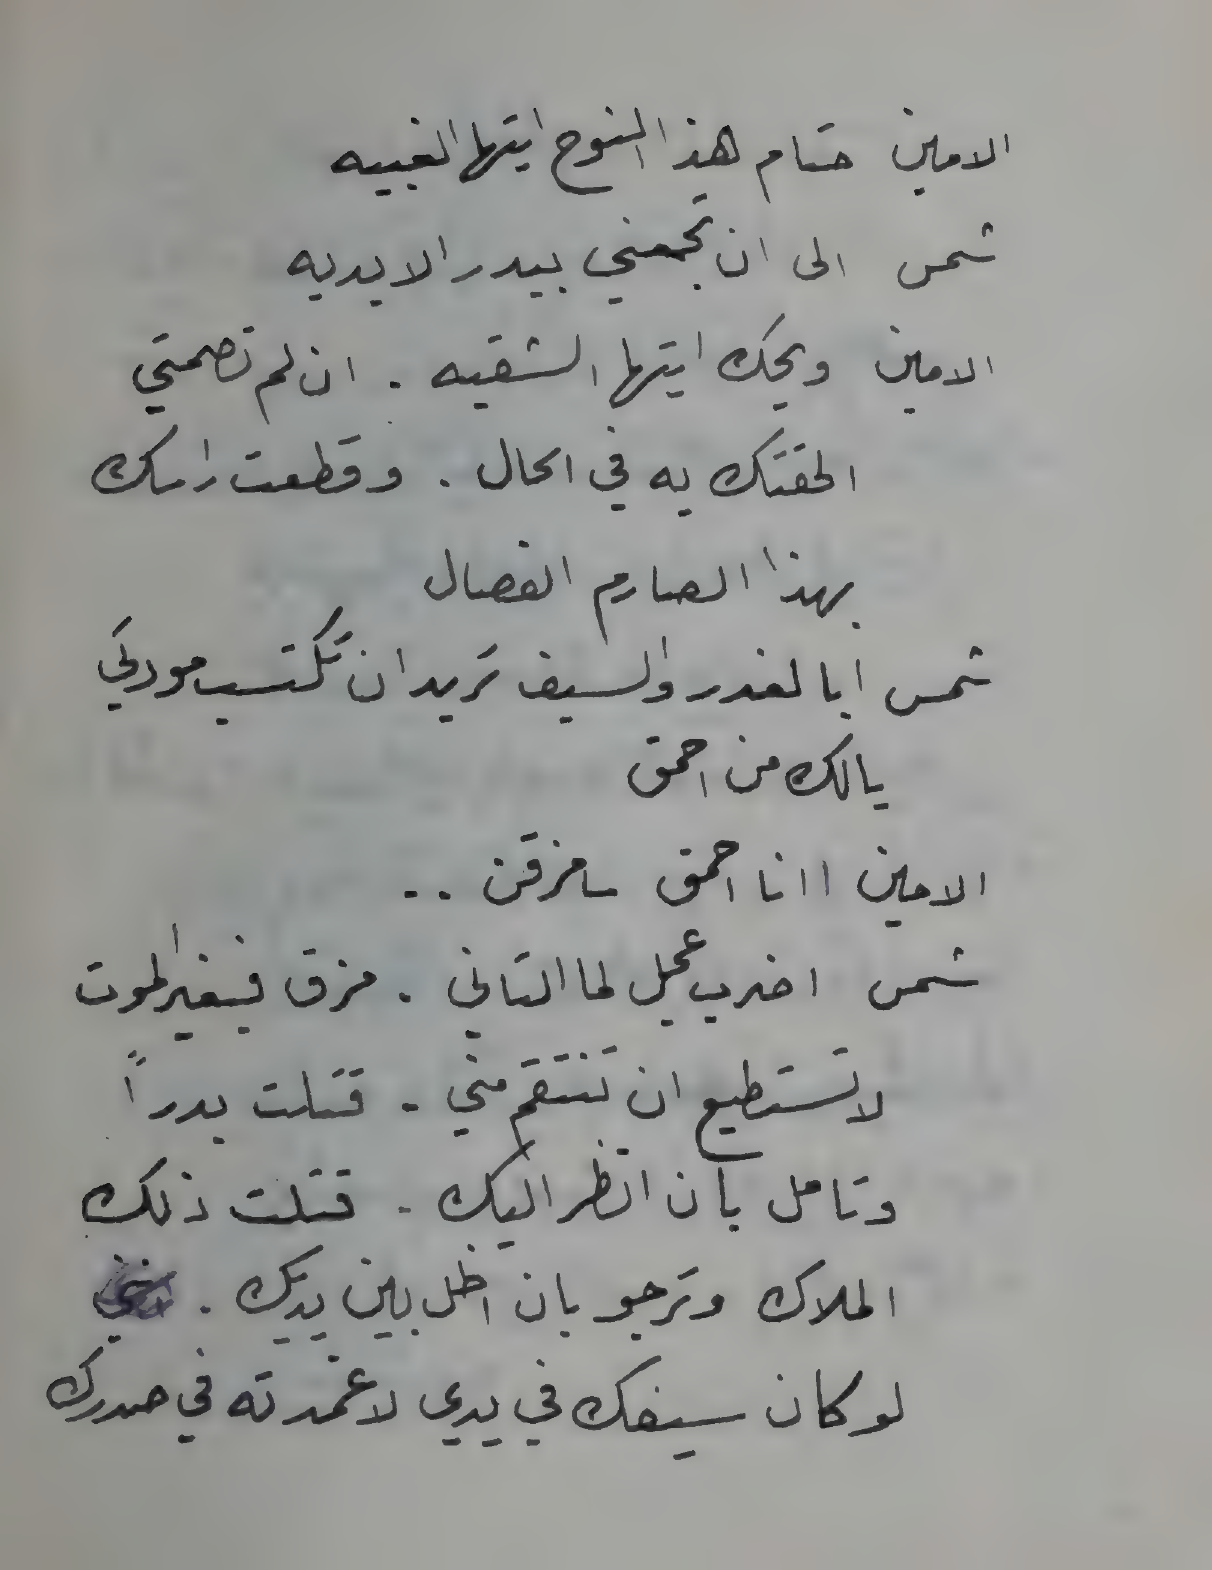 الامين حتام هذا النوح ايتها الغبيه
شمس الى ان تجمعني ببدر الابديه
الامين ويحك ايتها الشقيه . ان لم تصمتي
الحقتك به في الحال . وقطعت راسك
بهذا الصارم الفصال
شمس ابالغدر والسيف تريد ان تكتسب مودتي
يالك من احمق
الامين اانا احمق سامزقن ..
شمس اضرب عجل لما التاني . مزق فبغير الموت
لا تستطيع ان تنتقم مني . قتلت بدراً
وتامل بان انظر اليك . قتلت ذلك
الملاك وترجو بان اظل بين يديك .
لو كان سيفك في يدي لاغمدته في صدرك